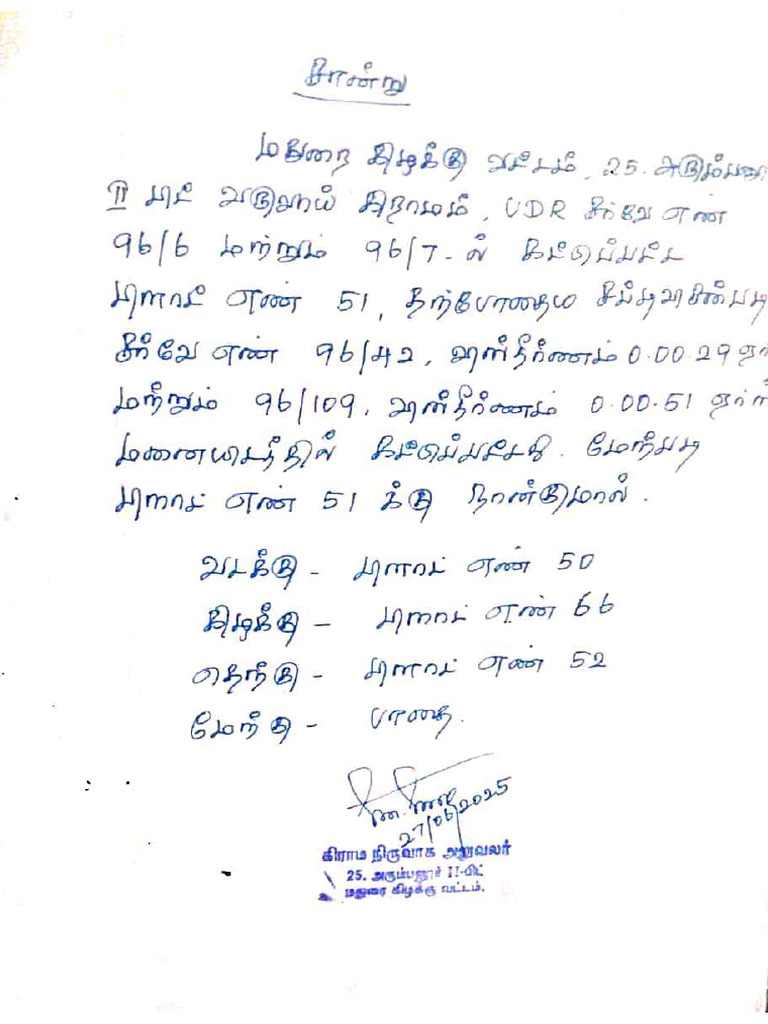 சான்று
மதுரை கிழக்கு வட்டம், 25. அரும்பனூர்
II பிட் வருவாய் கிராமம், UDR சர்வே எண்
96/6 மற்றும் 96/7-ல் கட்டுப்பட்ட
பிளாட் எண் 51, தற்போதைய சப்டிவிசன்படி
சர்வே எண் 96/42, விஸ்தீர்ணம் 0.00.29 ஏர்ஸ்
மற்றும் 96/109, விஸ்தீர்ணம் 0.00.51 ஏர்ஸ்
மனையிடத்தில் கட்டுப்பட்டது. மேற்படி
பிளாட் எண் 51 க்கு நான்குமால்.
வடக்கு - பிளாட் எண் 50
கிழக்கு - பிளாட் எண் 66
தெற்கு - பிளாட் எண் 52
மேற்கு - பாதை.
27/06/2025
கிராம நிருவாக அலுவலர்
25. அரும்பனூர் II-பிட்
மதுரை கிழக்கு வட்டம்.